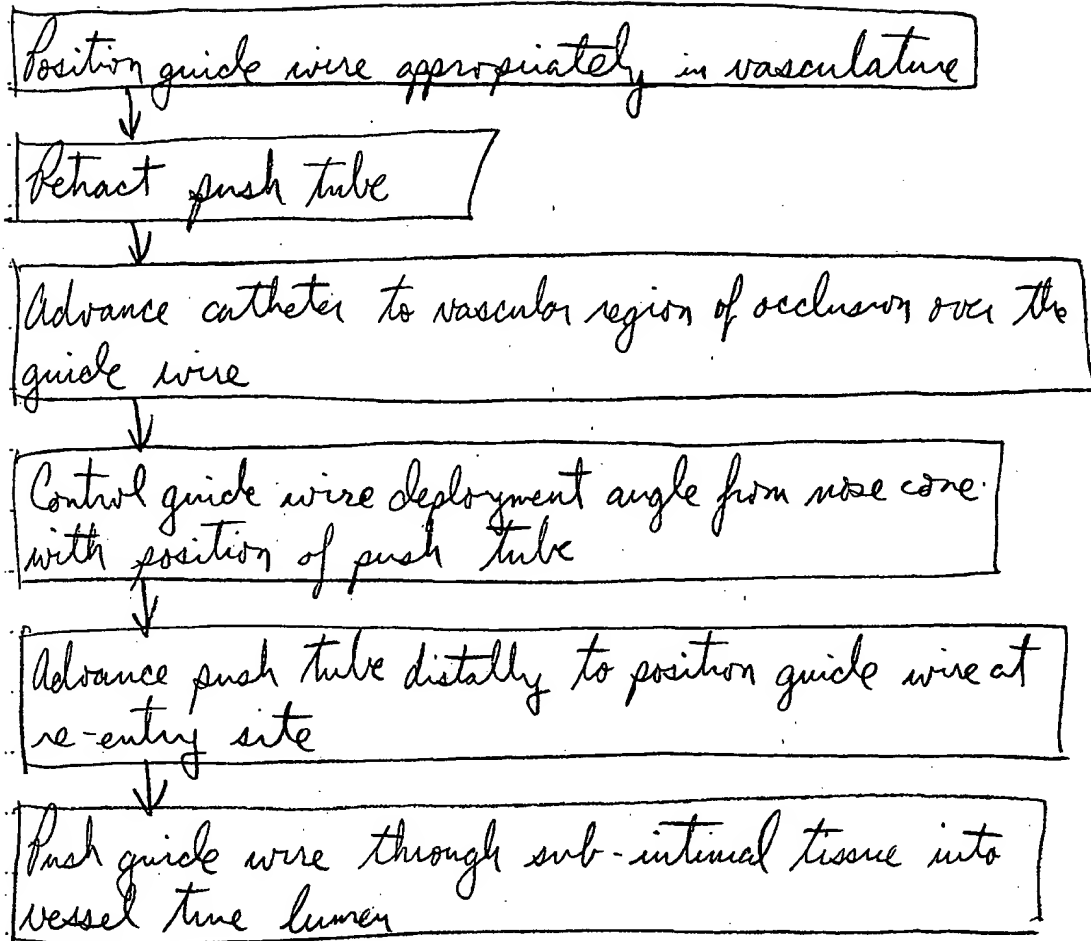 Position guide wire appropriately in vasculature
Retract push tube
Advance catheter to vascular region of occlusion over the
guide wire
Control guide wire deployment angle from nose cone
with position of push tube
Advance push tube distally to position guide wire at
re-entry site
Push guide wire through sub-intimal tissue into
vessel true lumen